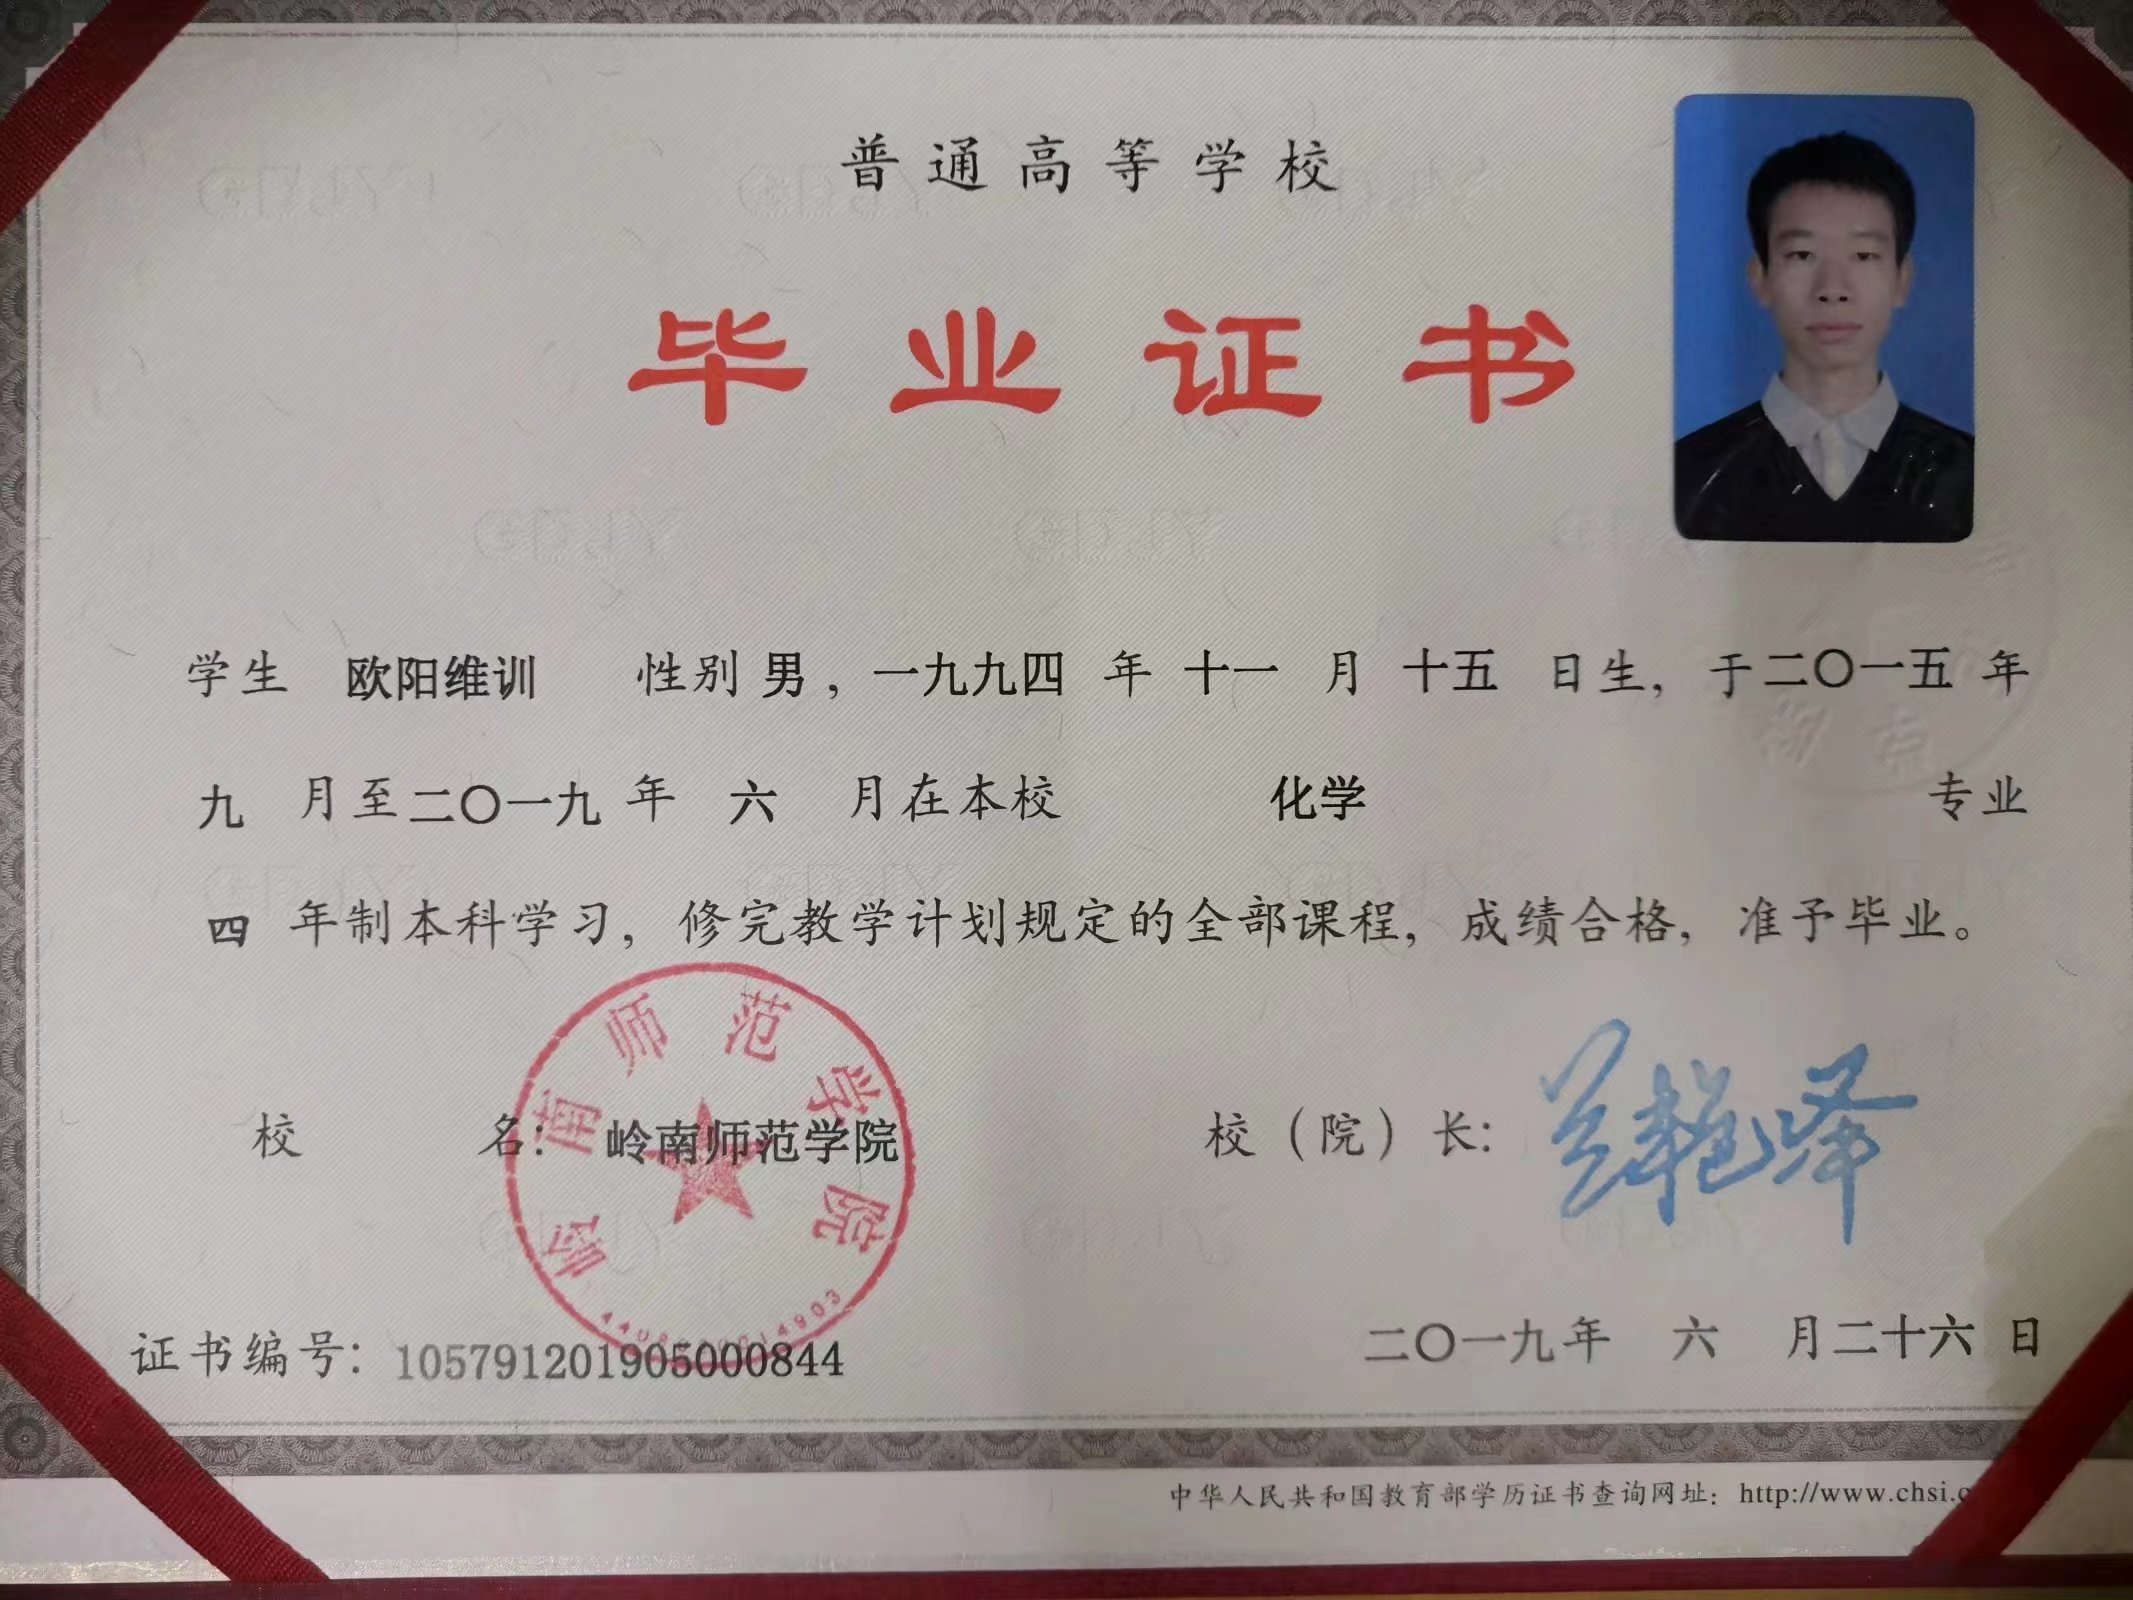 普通高等学校
毕业证书
学生 欧阳维训 性别 男，一九九四 年 十一 月 十五 日生，于二〇一五 年
九 月至二〇一九 年 六 月在本校 化学 专业
四 年制本科学习，修完教学计划规定的全部课程，成绩合格，准予毕业。
岭南师范学院
校 名：岭南师范学院
校（院）长：
证书编号：105791201905000844
二〇一九年 六 月二十六 日
中华人民共和国教育部学历证书查询网址：http://www.chsi.c